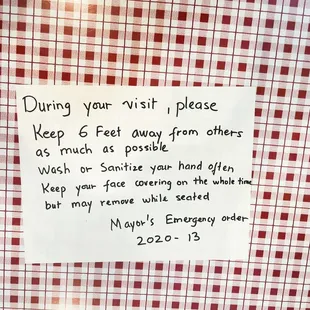 During your visit, please
Keep 6 Feet away from others
as much as possible
Wash or Sanitize your hand often
Keep your face covering on the whole time
but may remove while seated
Mayor's Emergency order
2020-13